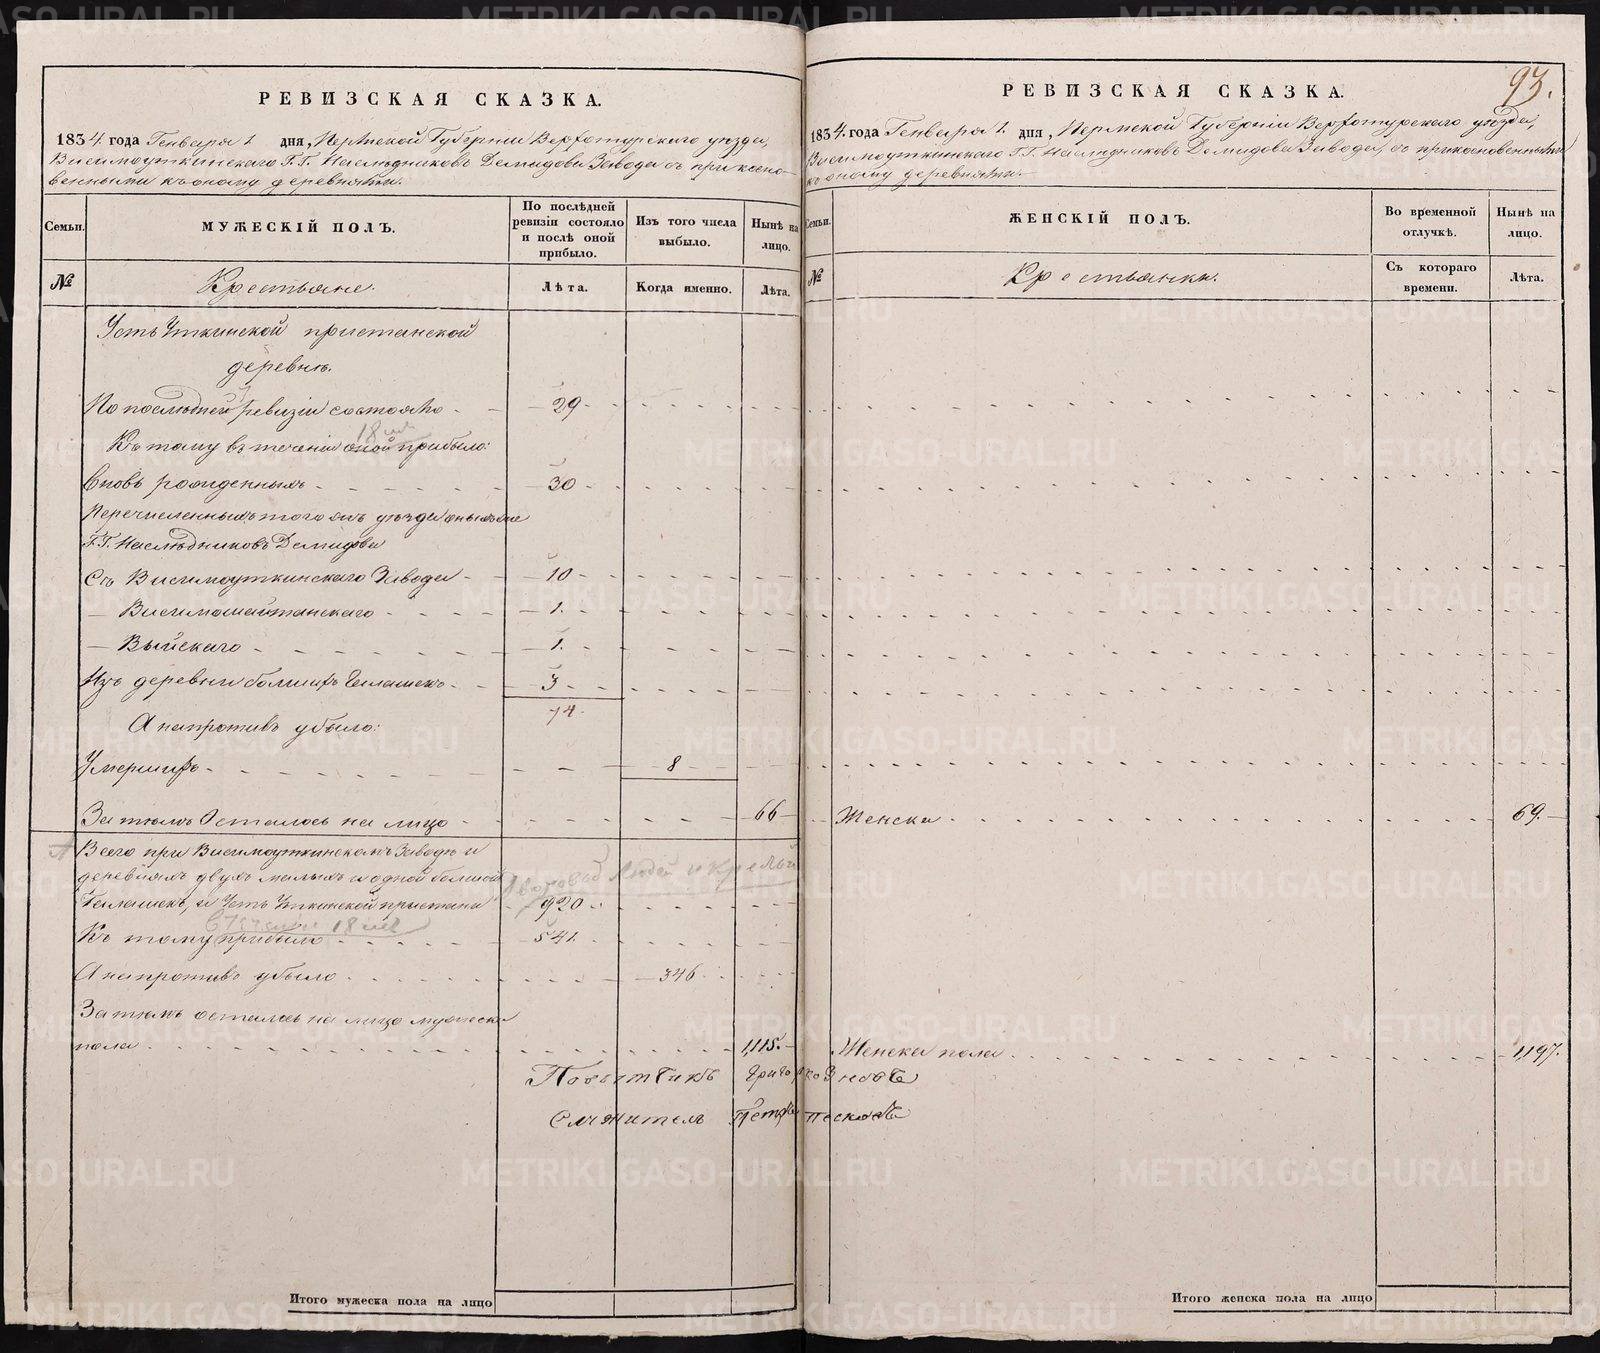 РЕВИЗСКАЯ СКАЗКА.
1834. года Генваря 1 дня, Пермской Губерніи Верхотурскаго уѣзда,
Висимоуткинскаго Г.Г. Наслѣдниковъ Демидова Завода съ прикосно-
венными къ оному деревнями.
Семьи.
МУЖЕСКІЙ ПОЛЪ.
По послѣдней ревизіи состояло и послѣ оной прибыло.
Изъ того числа выбыло.
Нынѣ на лицо.
№
Крестьяне.
Лѣта.
Когда именно.
Лѣта.
Усть Уткинской пристанской
деревнѣ.
По послѣдней ревизіи состояло 29
18
Къ тому въ теченіи оной прибыло:
Вновь рожденныхъ 30
Перечисленныхъ того жъ уѣзда
Г.Г. Наслѣдниковъ Демидова
Съ Висимоуткинскаго Завода 10
— Висимошайтанскаго 1.
— Выйскаго 1.
Изъ деревни большихъ Галашекъ 3
74.
А напротивъ убыло:
Умершихъ 8
Затѣмъ Осталось на лицо 66
Всего при Висимоуткинскомъ Заводѣ и
деревняхъ двухъ малыхъ и одной большой
Галашекъ, и Усть Уткинской пристани 920
Къ тому прибыло 541.
А напротивъ убыло 346
Затѣмъ осталось на лицо мужеска
пола 1,115.
Итого мужеска пола на лицо
РЕВИЗСКАЯ СКАЗКА.
93.
1834. года Генваря 1. дня, Пермской Губерніи Верхотурскаго уѣзда,
Висимоуткинскаго Г.Г. Наслѣдниковъ Демидова Завода, съ прикосновенными
къ оному деревнями.
Семьи.
ЖЕНСКІЙ ПОЛЪ.
Во временной отлучкѣ.
Нынѣ на лицо.
№
Крестьянки.
Съ котораго времени.
Лѣта.
Женска 69.
Женска пола 1,197.
Повытчикъ
Служитель Петръ Песковъ
Итого женска пола на лицо
METRIKI.GASO-URAL.RU